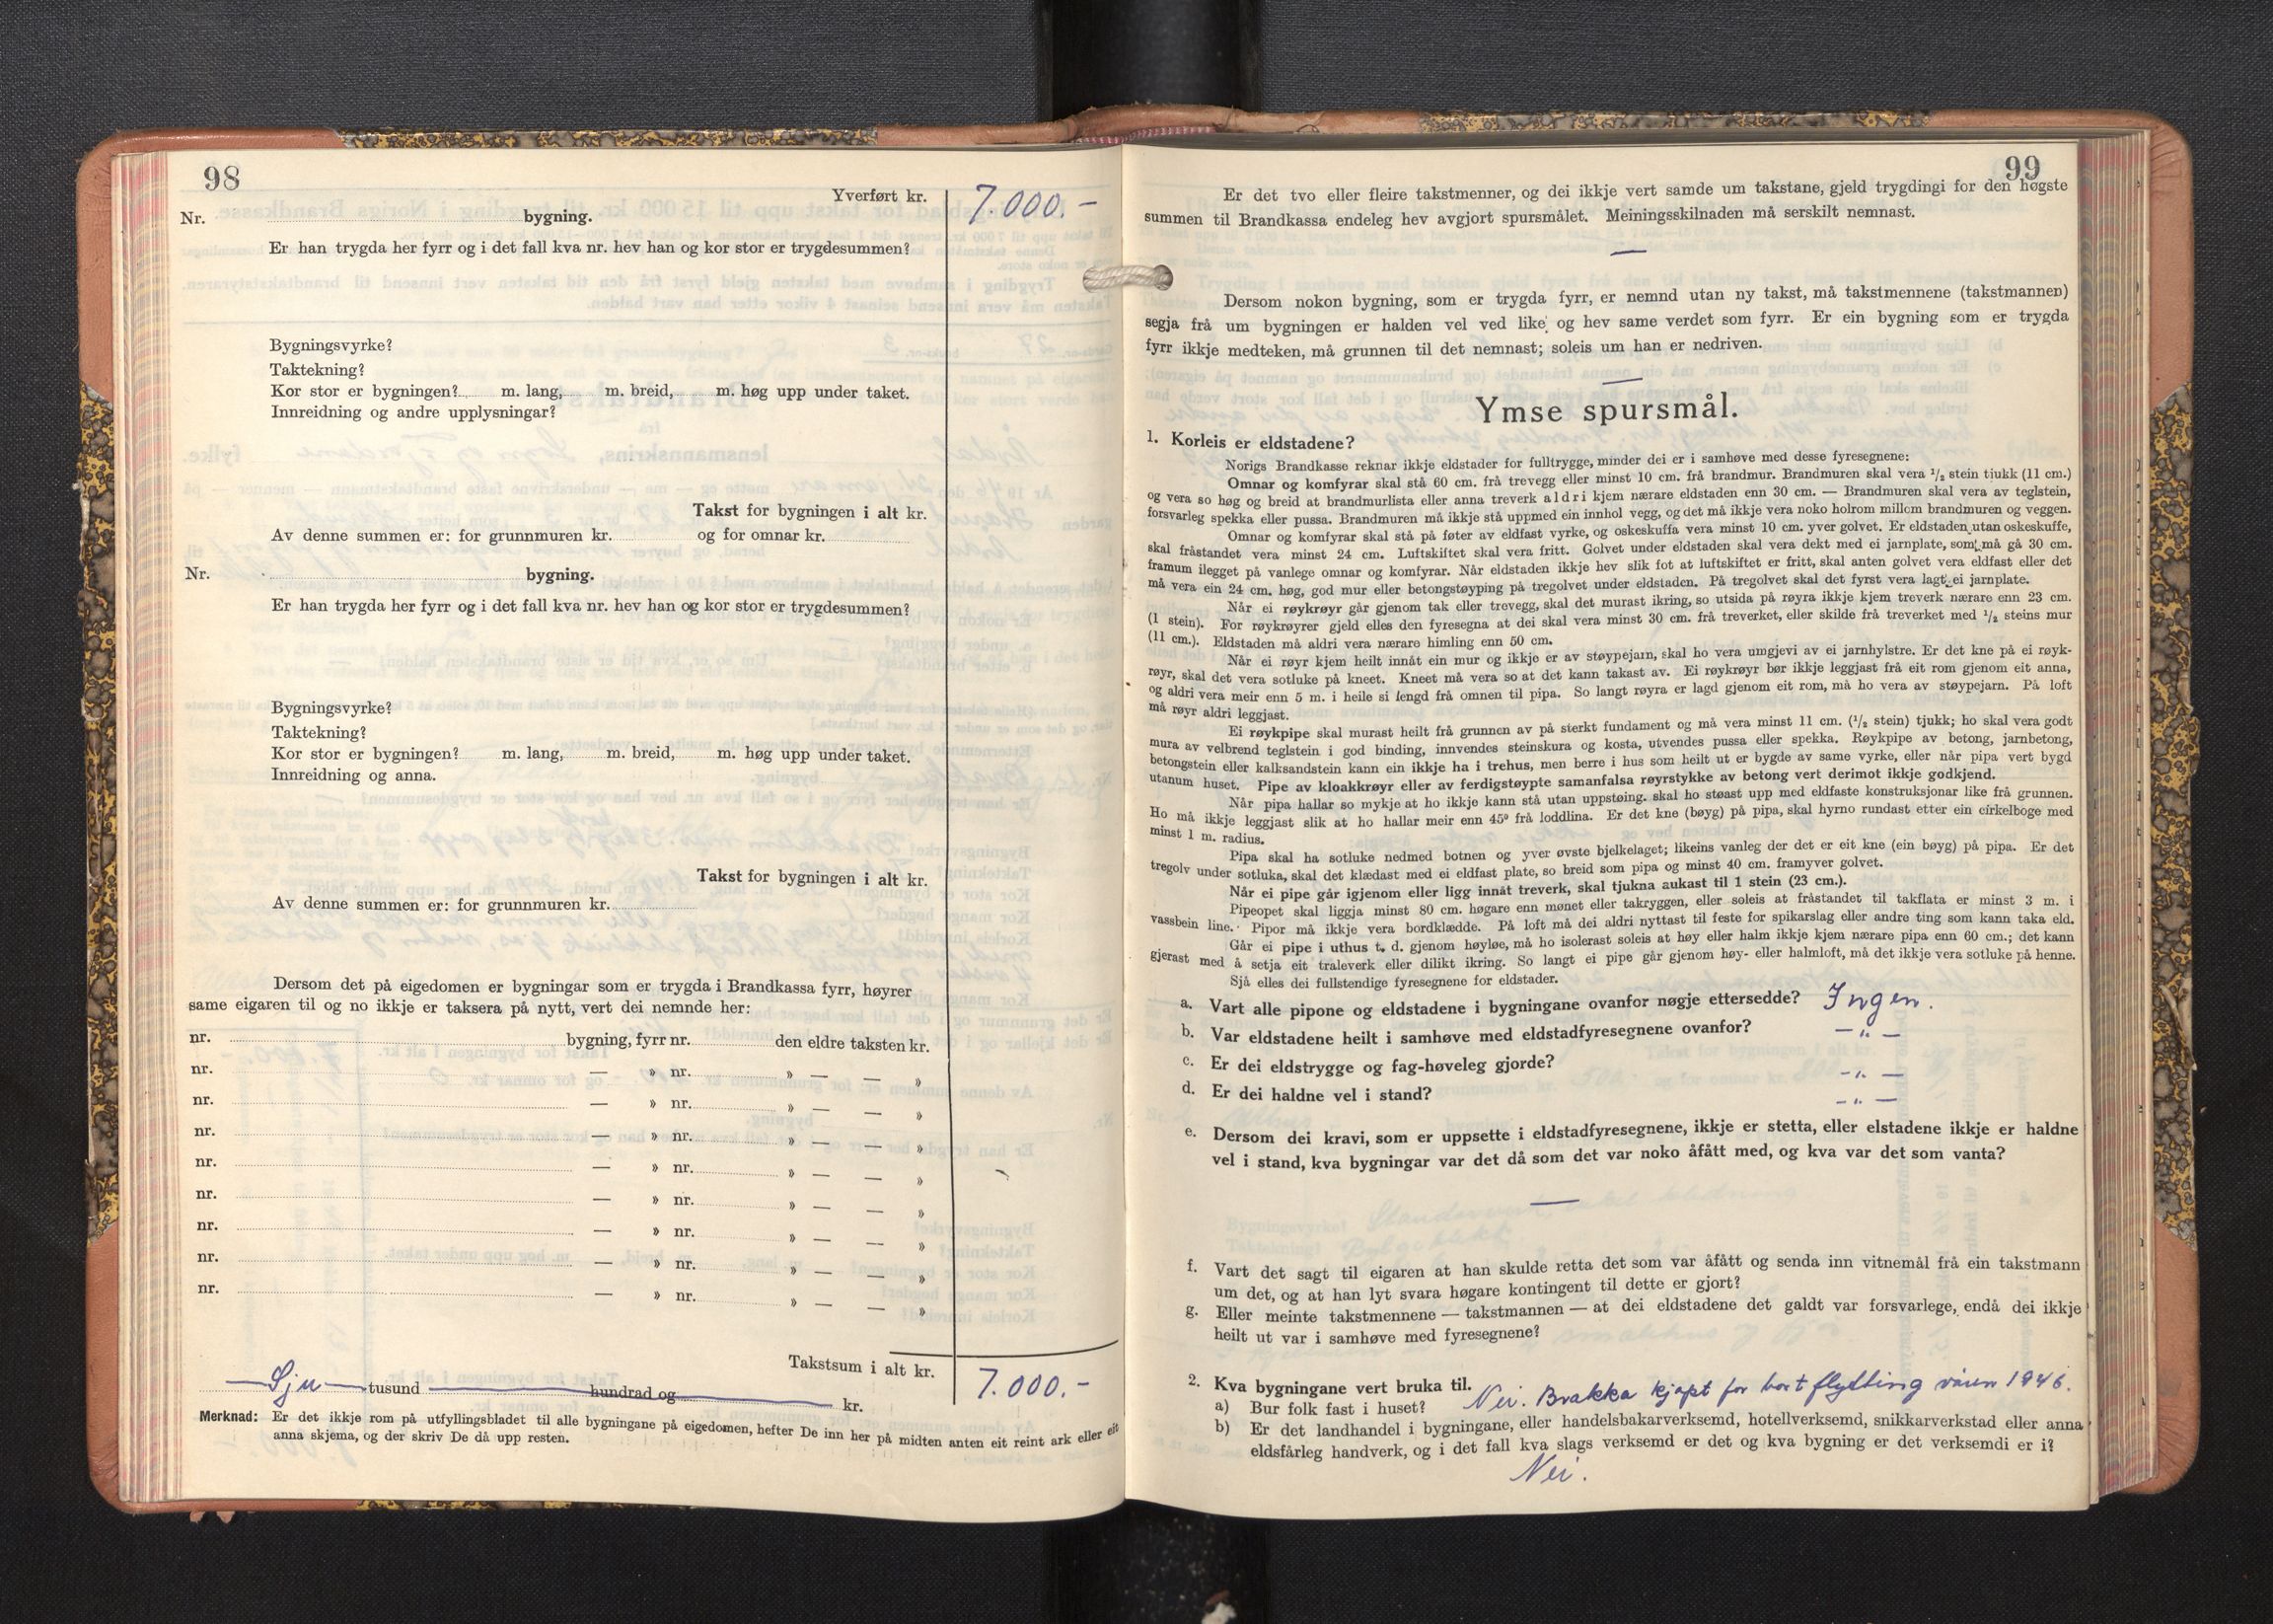 98
Yverført kr. 7.000.-
Nr. bygning.
Er han trygda her fyrr og i det fall kva nr. hev han og kor stor er trygdesummen?
Bygningsvyrke?
Taktekning?
Kor stor er bygningen? m. lang, m. breid, m. høg upp under taket.
Innreidning og andre upplysningar?
Takst for bygningen i alt kr.
Av denne summen er: for grunnmuren kr. og for omnar kr.
Nr. bygning.
Er han trygda her fyrr og i det fall kva nr. hev han og kor stor er trygdesummen?
Bygningsvyrke?
Taktekning?
Kor stor er bygningen? m. lang, m. breid, m. høg upp under taket.
Innreidning og anna.
Takst for bygningen i alt kr.
Av denne summen er: for grunnmuren kr.
Dersom det på eigedomen er bygningar som er trygda i Brandkassa fyrr, høyrer
same eigaren til og no ikkje er taksera på nytt, vert dei nemnde her:
nr. bygning, fyrr nr. den eldre taksten kr.
nr. — » nr. » — — »
nr. — » nr. » — — »
nr. — » nr. » — — »
nr. — » nr. » — — »
nr. — » nr. » — — »
nr. — » nr. » — — »
nr. — » nr. » — — »
nr. — » nr. » — — »
Takstsum i alt kr. 7.000.-
— Sju — tusund — hundrad og — kr.
Merknad: Er det ikkje rom på utfyllingsbladet til alle bygningane på eigedomen, hefter De inn her på midten anten eit reint ark eller eit
anna skjema, og der skriv De då upp resten.
99
Er det tvo eller fleire takstmenner, og dei ikkje vert samde um takstane, gjeld trygdingi for den høgste
summen til Brandkassa endeleg hev avgjort spursmålet. Meiningsskilnaden må serskilt nemnast.
—
Dersom nokon bygning, som er trygda fyrr, er nemnd utan ny takst, må takstmennene (takstmannen)
segja frå um bygningen er halden vel ved like og hev same verdet som fyrr. Er ein bygning som er trygda
fyrr ikkje medteken, må grunnen til det nemnast; soleis um han er nedriven.
—
Ymse spursmål.
1. Korleis er eldstadene?
Norigs Brandkasse reknar ikkje eldstader for fulltrygge, minder dei er i samhøve med desse fyresegnene:
Omnar og komfyrar skal stå 60 cm. frå trevegg eller minst 10 cm. frå brandmur. Brandmuren skal vera ½ stein tjukk (11 cm.)
og vera so høg og breid at brandmurlista eller anna treverk aldri kjem nærare eldstaden enn 30 cm. — Brandmuren skal vera av teglstein,
forsvarleg spekka eller pussa. Brandmuren må ikkje stå uppmed ein innhol vegg, og det må ikkje vera noko holrom millom brandmuren og veggen.
Omnar og komfyrar skal stå på føter av eldfast vyrke, og oskeskuffa vera minst 10 cm. yver golvet. Er eldstaden utan oskeskuffe,
skal fråstandet vera minst 24 cm. Luftskiftet skal vera fritt. Golvet under eldstaden skal vera dekt med ei jarnplate, som må gå 30 cm.
framum ilegget på vanlege omnar og komfyrar. Når eldstaden ikkje hev slik fot at luftskiftet er fritt, skal anten golvet vera eldfast eller det
må vera ein 24 cm. høg, god mur eller betongstøyping på tregolvet under eldstaden. På tregolvet skal det fyrst vera lagt ei jarnplate.
Når ei røykrøyr går gjenom tak eller trevegg, skal det murast ikring, so utsida på røyra ikkje kjem treverk nærare enn 23 cm.
(1 stein). For røykrøyrer gjeld elles den fyresegna at dei skal vera minst 30 cm. frå treverket, eller skilde frå treverket med ½ steins mur
(11 cm.). Eldstaden må aldri vera nærare himling enn 50 cm.
Når ei røyr kjem heilt innåt ein mur og ikkje er av støypejarn, skal ho vera umgjevi av ei jarnhylstre. Er det kne på ei røyk-
røyr, skal det vera sotluke på kneet. Kneet må vera so at det kann takast av. Ei røykrøyr bør ikkje leggjast frå eit rom gjenom eit anna,
og aldri vera meir enn 5 m. i heile si lengd frå omnen til pipa. So langt røyra er lagd gjenom eit rom, må ho vera av støypejarn. På loft
må røyr aldri leggjast.
Ei røykpipe skal murast heilt frå grunnen av på sterkt fundament og må vera minst 11 cm. (½ stein) tjukk; ho skal vera godt
mura av velbrend teglstein i god binding, innvendes steinskura og kosta, utvendes pussa eller spekka. Røykpipe av betong, jarnbetong,
betongstein eller kalksandstein kann ein ikkje ha i trehus, men berre i hus som heilt ut er bygde av same vyrke, eller når pipa vert bygd
utanum huset. Pipe av kloakkrøyr eller av ferdigstøypte samanfalsa røyrstykke av betong vert derimot ikkje godkjend.
Når pipa hallar so mykje at ho ikkje kann stå utan uppstøing. skal ho støast upp med eldfaste konstruksjonar like frå grunnen.
Ho må ikkje leggjast slik at ho hallar meir enn 45° frå loddlina. Er det kne (bøyg) på pipa, skal hyrno rundast etter ein cirkelboge med
minst 1 m. radius.
Pipa skal ha sotluke nedmed botnen og yver øvste bjelkelaget; likeins vanleg der det er eit kne (ein bøyg) på pipa. Er det
tregolv under sotluka, skal det klædast med ei eldfast plate, so breid som pipa og minst 40 cm. framyver golvet.
Når ei pipe går igjenom eller ligg innåt treverk, skal tjukna aukast til 1 stein (23 cm.).
Pipeopet skal liggja minst 80 cm. høgare enn mønet eller takryggen, eller soleis at fråstandet til takflata er minst 3 m. i
vassbein line. Pipor må ikkje vera bordklædde. På loft må dei aldri nyttast til feste for spikarslag eller andre ting som kann taka eld.
Går ei pipe i uthus t. d. gjenom høyløe, må ho isolerast soleis at høy eller halm ikkje kjem nærare pipa enn 60 cm.; det kann
gjerast med å setja eit traleverk eller dilikt ikring. So langt ei pipe går gjenom høy- eller halmloft, må det ikkje vera sotluke på henne.
Sjå elles dei fullstendige fyresegnene for eldstader.
a. Vart alle pipone og eldstadene i bygningane ovanfor nøgje ettersedde? Ingen.
b. Var eldstadene heilt i samhøve med eldstadfyresegnene ovanfor? — „ —
c. Er dei eldstrygge og fag-høveleg gjorde? — „ —
d. Er dei haldne vel i stand? — „ —
e. Dersom dei kravi, som er uppsette i eldstadfyresegnene, ikkje er stetta, eller elstadene ikkje er haldne
vel i stand, kva bygningar var det då som det var noko åfått med, og kva var det som vanta?
—
f. Vart det sagt til eigaren at han skulde retta det som var åfått og senda inn vitnemål frå ein takstmann
um det, og at han lyt svara høgare kontingent til dette er gjort?
g. Eller meinte takstmennene — takstmannen — at dei eldstadene det galdt var forsvarlege, endå dei ikkje
heilt ut var i samhøve med fyresegnene?
2. Kva bygningane vert bruka til.
a) Bur folk fast i huset? Nei. Brakka kjøpt for bortflytting våren 1946.
b) Er det landhandel i bygningane, eller handelsbakarverksemd, hotellverksemd, snikkarverkstad eller anna
eldsfårleg handverk, og i det fall kva slags verksemd er det og kva bygning er det verksemdi er i?
Nei.